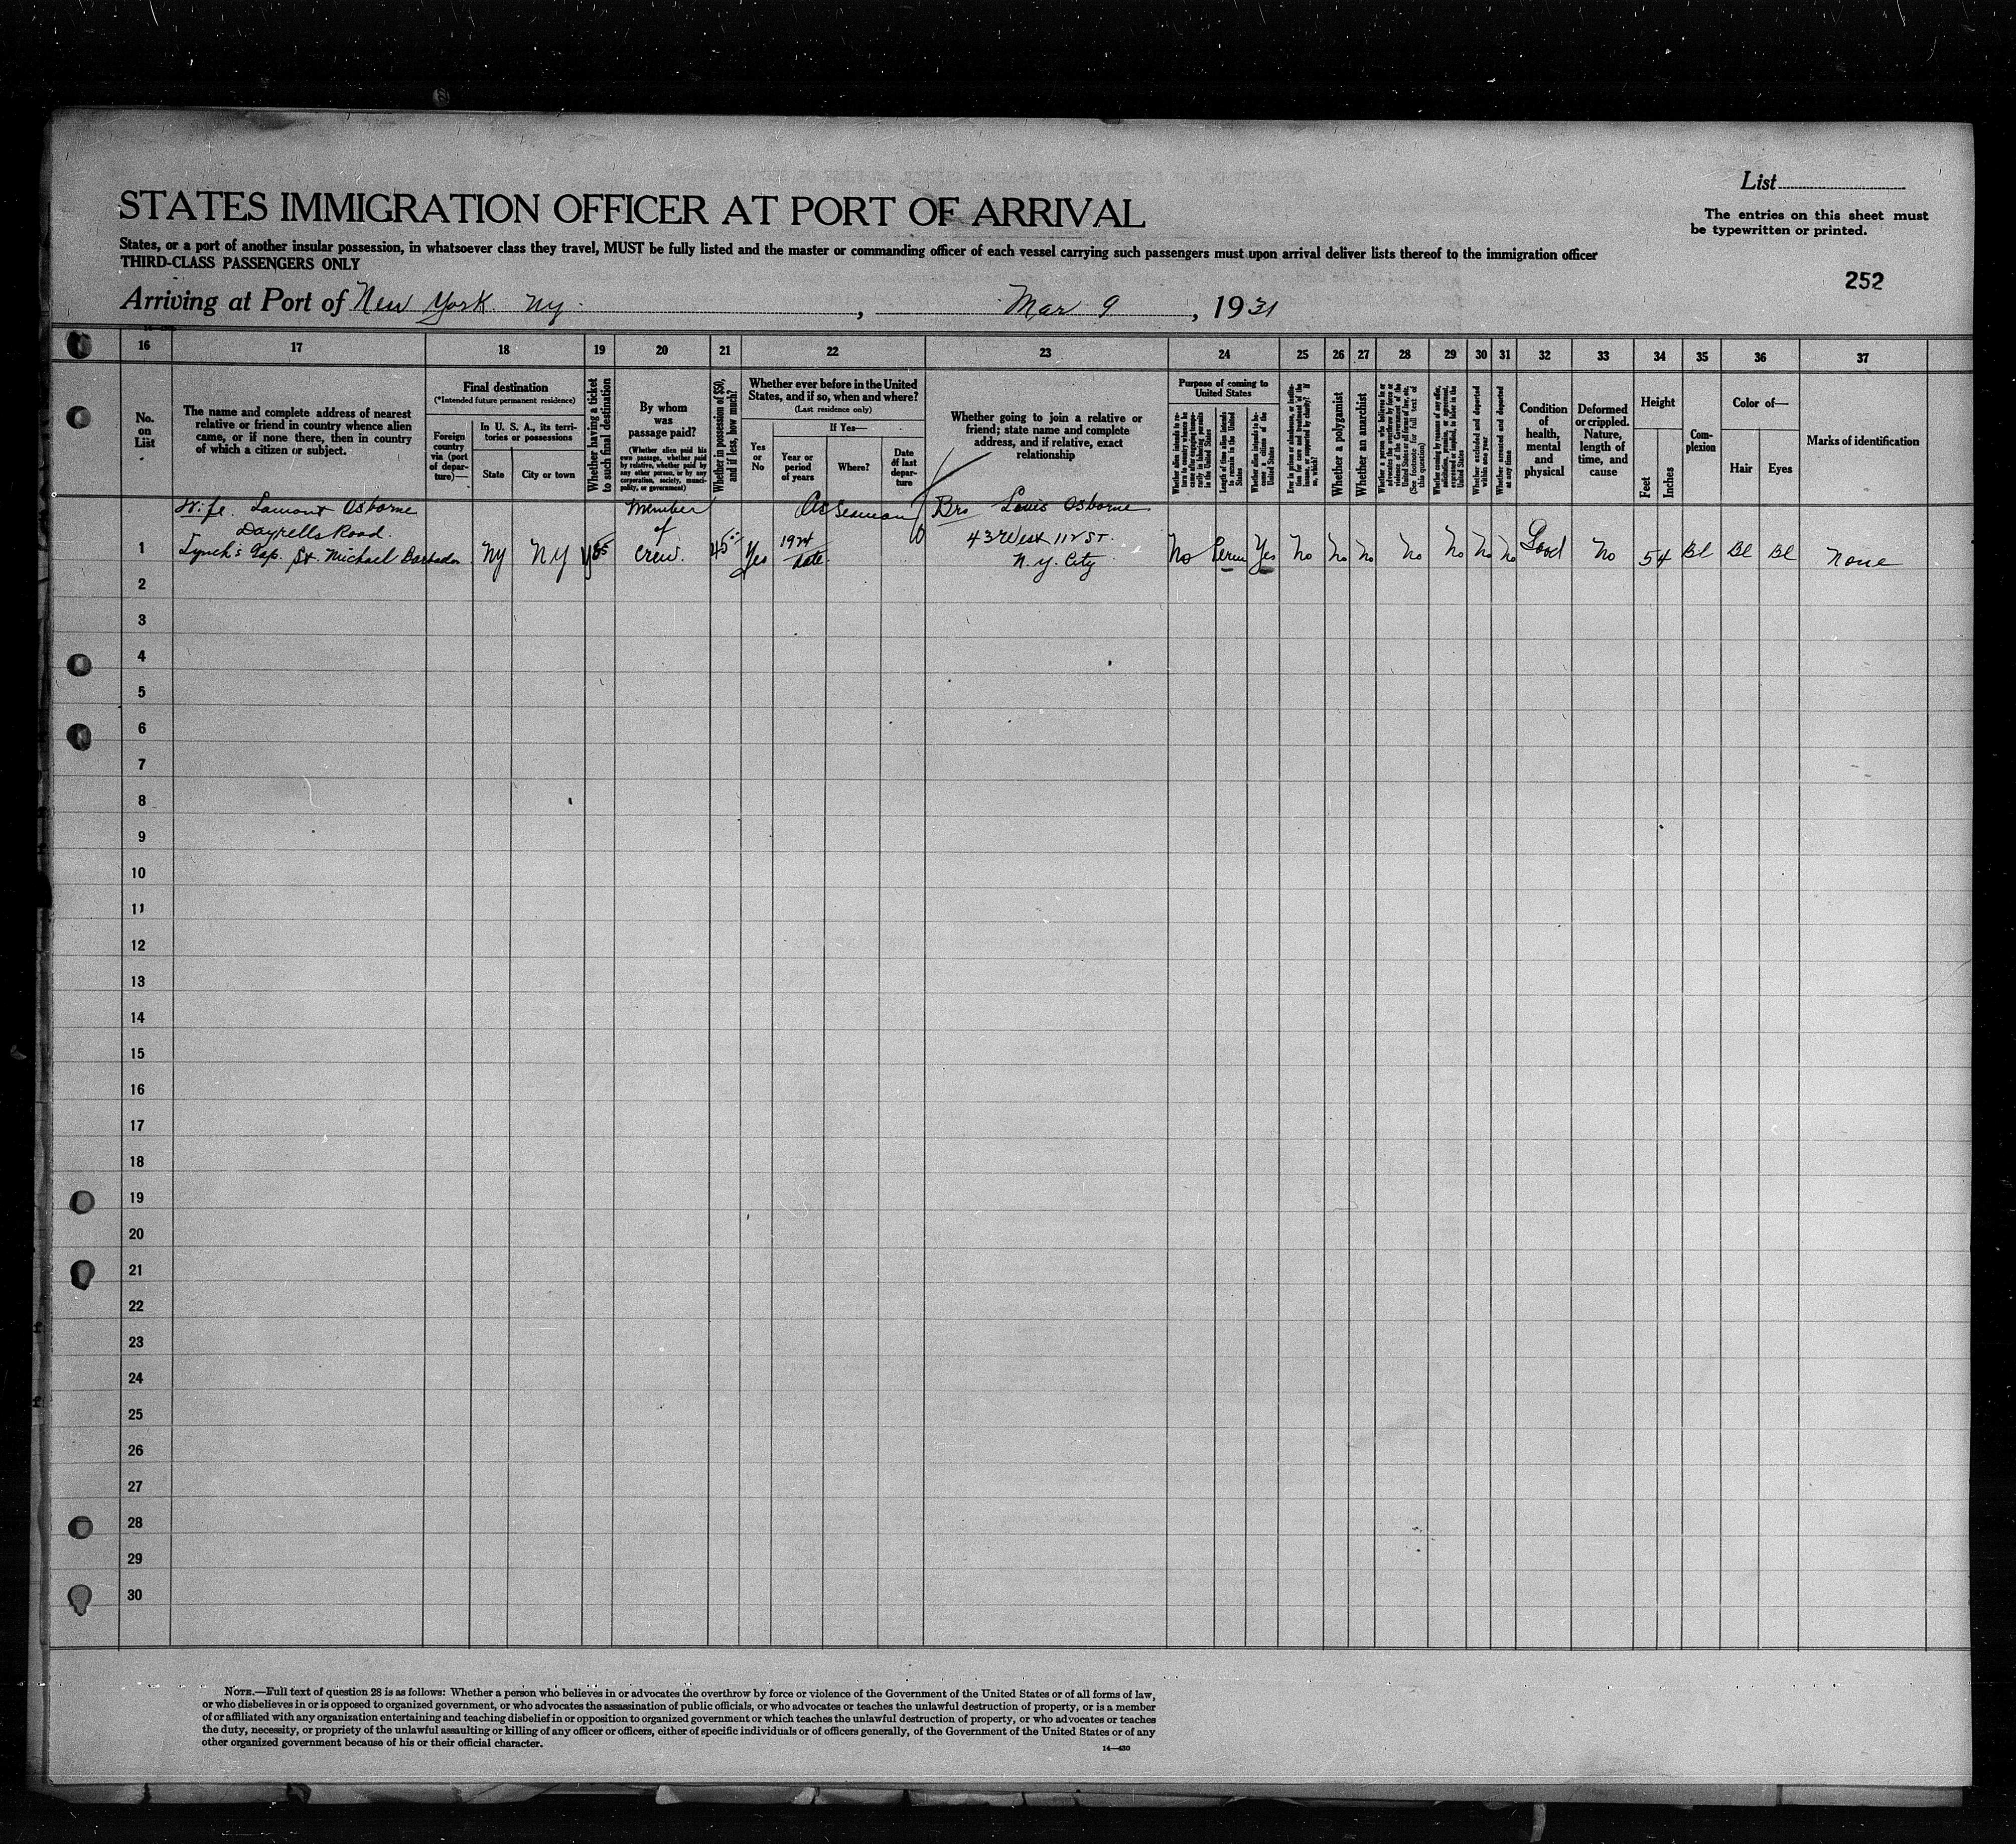 List
The entries on this sheet must
be typewritten or printed.
STATES IMMIGRATION OFFICER AT PORT OF ARRIVAL
States, or a port of another insular possession, in whatsoever class they travel, MUST be fully listed and the master or commanding officer of each vessel carrying such passengers must upon arrival deliver lists thereof to the immigration officer
THIRD-CLASS PASSENGERS ONLY
252
Arriving at Port of New York. Ny. , Mar 9 , 1931
16 17 18 19 20 21 22 23 24 25 26 27 28 29 30 31 32 33 34 35 36 37
No.
on
List
The name and complete address of nearest
relative or friend in country whence alien
came, or if none there, then in country
of which a citizen or subject.
Final destination
(*Intended future permanent residence)
Foreign
country
via (port
of depar-
ture)—
In U. S. A., its terri-
tories or possessions
State
City or town
Whether having a ticket
to such final destination
By whom
was
passage paid?
(Whether alien paid his
own passage, whether paid
by relative, whether paid by
any other person, or by any
corporation, society, munici-
pality, or government)
Whether in possession of $50,
and if less, how much?
Whether ever before in the United
States, and if so, when and where?
(Last residence only)
Yes
or
No
If Yes—
Year or
period
of years
Where?
Date
of last
depar-
ture
Whether going to join a relative or
friend; state name and complete
address, and if relative, exact
relationship
Purpose of coming to
United States
Whether alien intends to re-
turn to country whence he
came after engaging tempo-
rarily in laboring pursuits
in the United States
Length of time alien intends
to remain in the United
States
Whether alien intends to be-
come a citizen of the
United States
Ever in prison or almshouse, or institu-
tion for care and treatment of the
insane, or supported by charity? If
so, which?
Whether a polygamist
Whether an anarchist
Whether a person who believes in or
advocates the overthrow by force or
violence of the Government of the
United States or all forms of law, etc.
(See footnote for full text of
this question)
Whether coming by reason of any offer,
solicitation, promise, or agreement,
expressed or implied, to labor in the
United States
Whether excluded and deported
within one year
Whether arrested and deported
at any time
Condition
of
health,
mental
and
physical
Deformed
or crippled.
Nature,
length of
time, and
cause
Height
Feet
Inches
Com-
plexion
Color of—
Hair
Eyes
Marks of identification
Wife. Lamont Osborne
Dayrells Road.
Lynch's Gap. St. Michael Barbados
Ny NY yes
Member
of
crew.
45
Yes
As Seaman
1924
date
Bro Louis Osborne
43 West 112 ST.
N. Y. City
No Perm Yes No No No No No No No Good No 5 4 Bl Bl Bl none
1
2
3
4
5
6
7
8
9
10
11
12
13
14
15
16
17
18
19
20
21
22
23
24
25
26
27
28
29
30
NOTE.—Full text of question 28 is as follows: Whether a person who believes in or advocates the overthrow by force or violence of the Government of the United States or of all forms of law,
or who disbelieves in or is opposed to organized government, or who advocates the assassination of public officials, or who advocates or teaches the unlawful destruction of property, or is a member
of or affiliated with any organization entertaining and teaching disbelief in or opposition to organized government or which teaches the unlawful destruction of property, or who advocates or teaches
the duty, necessity, or propriety of the unlawful assaulting or killing of any officer or officers, either of specific individuals or of officers generally, of the Government of the United States or of any
other organized government because of his or their official character.
14—430